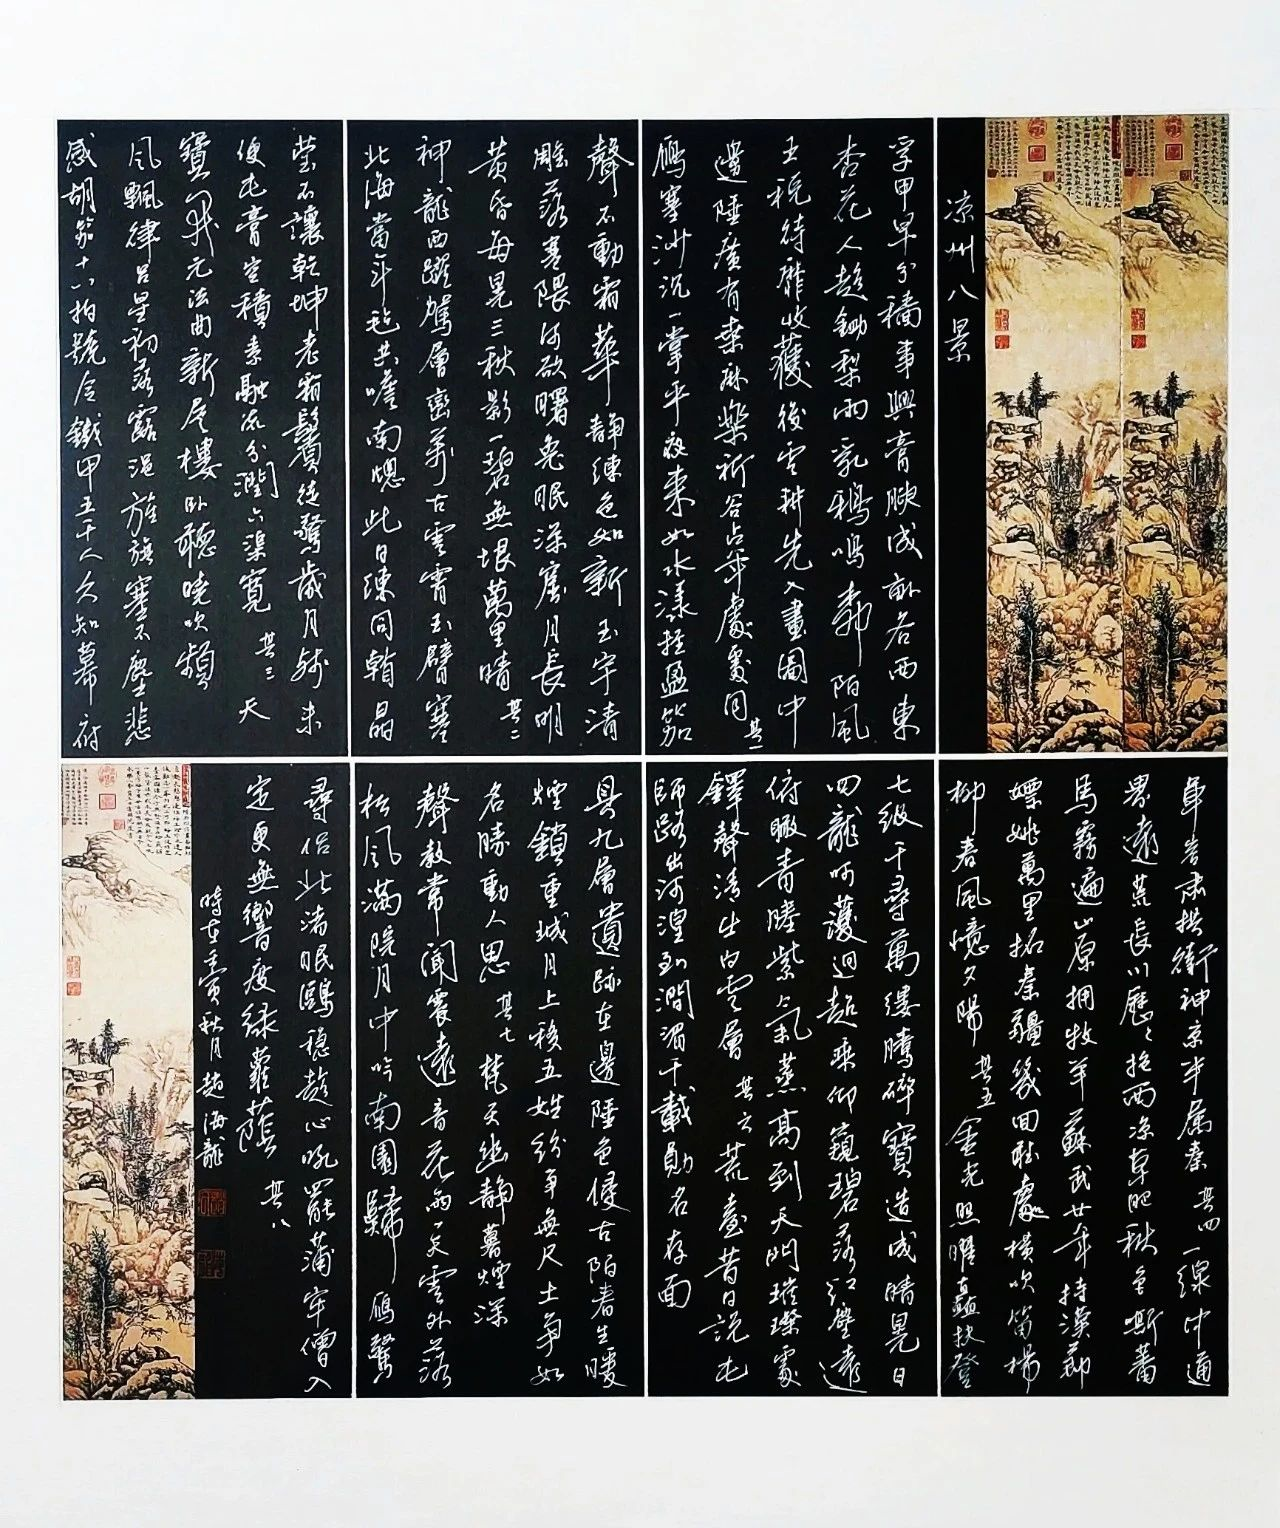 涼州八景
孚甲早分穡事興膏腴成畝各西東
杏花人趁鋤犁雨乳鴉鳴郊陌風
王稅待酬收獲後雲耕先入畫圖中
邊陲廣有桑麻樂祈谷占年處處同 其一
雁塞沙沉一掌平夜來如水漾輕盈笳
聲不動霜華靜練色如新玉宇清
雕落塞隈河欲曙兔眠深窟月長明
黃昏每晃三秋影一碧無垠萬里晴 其二
神龍西躍駕層巒萬古雲霄玉臂寒
北海當年氈共嚙南熜此日練同翰晶
瑩不讓乾坤老霜鬢徒驚歲月殘未
便屯膏空積素融流分潤六渠寬 其三 天
寶年元法曲新層樓臥聽曉吹頻
風飄律呂星初落露浥旌旗塞不塵悲
感胡笳十八拍號令鐵甲五千人久知幕府
尊嚴肅拱衛神京半屬秦 其四 一線中通
界遠荒長川歷歷抱西涼草肥秋色嘶蕃
馬霧遍山原擁牧羊蘇武廿年持漢節
嫖姚萬里拓秦疆幾回聽處橫吹笛場
柳春風憶夕陽 其五 金光照耀矗扶登
七級千尋萬縷騰碎寶造成晴晃日
四龍呵護迥超乘仰窺碧落紅塵遠
俯瞰青塍紫氣蒸高到天門璀璨處
鐸聲清出白雲層 其六 荒臺昔日說屯
師路出河湟到澗湄千載勛名存面
具九層遺跡在邊陲色侵古陌春生暖
煙鎖重城月上移五姓紛爭無尺土爭如
名勝動人思 其七 梵天幽靜暮煙深
聲教常聞震遠音花雨一天雲外落
松風滿院月中吟南園歸雁驚
尋侶北渚眠鷗穩趁心吼罷蒲牢僧入
定更無響度綠蘿蔭 其八
時在壬寅秋月趙海龍